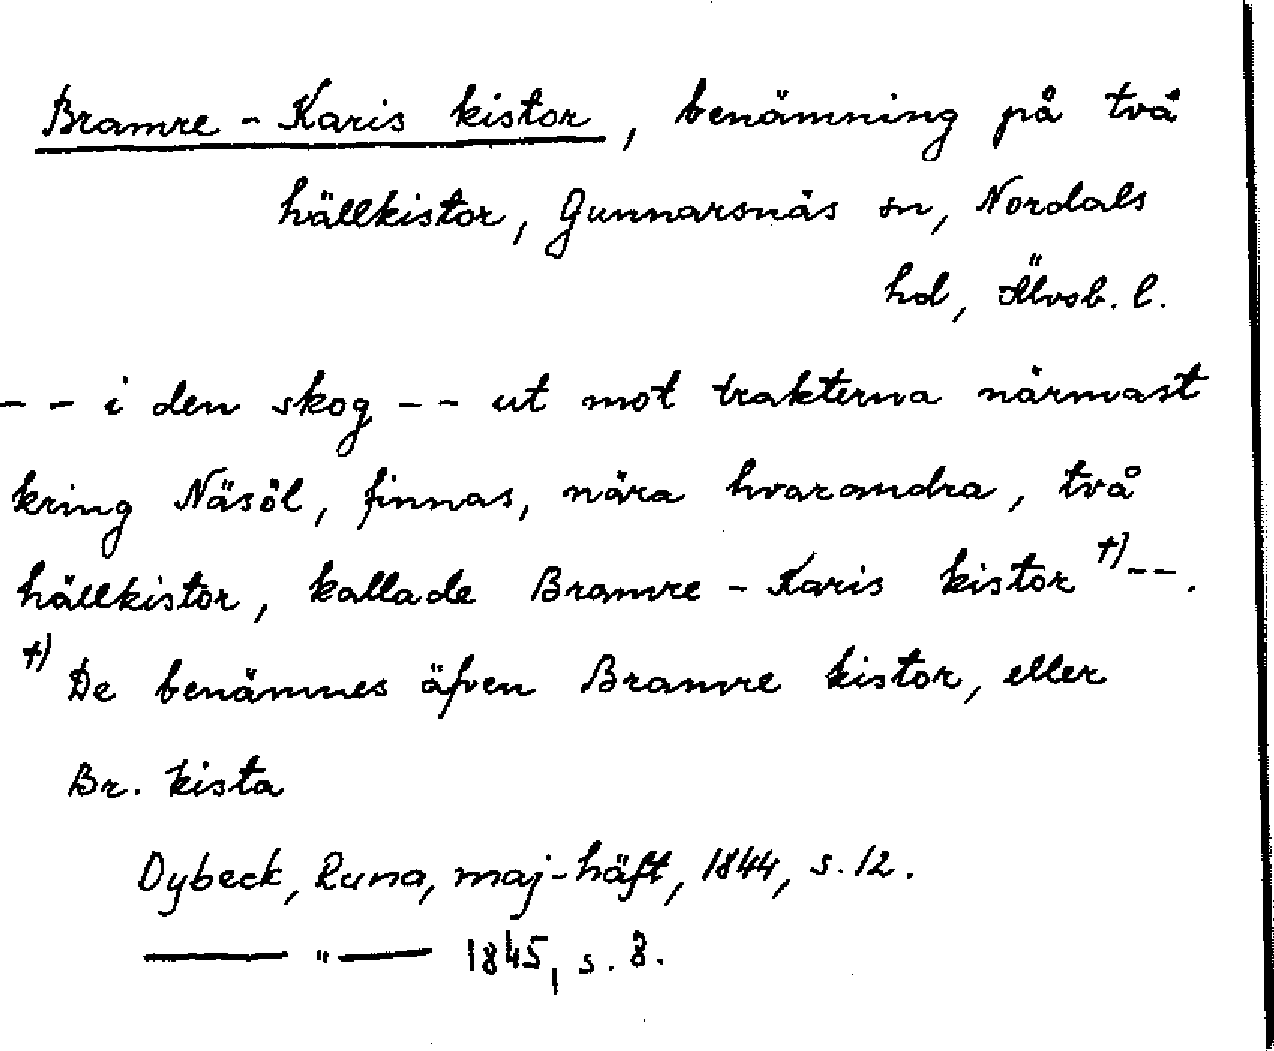 Bramre - Karis kistor, benämning på två
hällkistor, Gunnarsnäs sn, Nordals
hd, Älvsb. l.
- - i den skog - - ut mot trakterna närmast
kring Näsöl, finnas, nära hvarandra, två
hällkistor, kallade Bramre - Karis kistor +) - - .
+) De benämnes äfven Bramre kistor, eller
Br. kista
Dybeck, Runa, maj-häft, 1844, s. 12.
— " — 1845, s. 8.